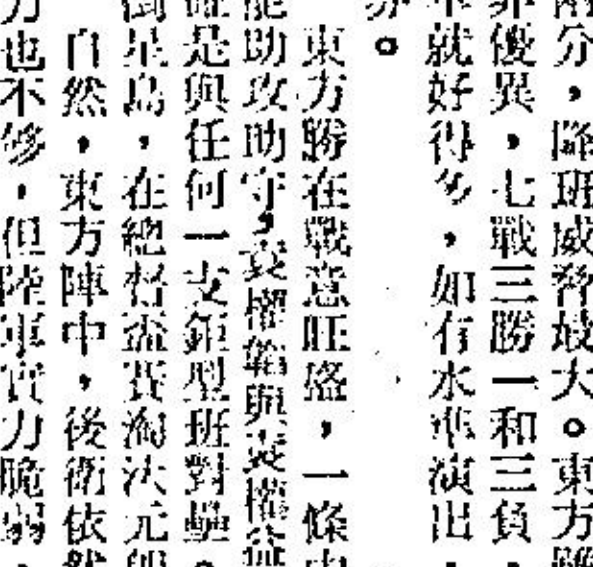 分，降班威脅最大。東方雖
優異，七戰三勝一和三負
就好得多，如有水準演出，
亦。
東方勝在戰意旺盛，一條
能助攻助守，袁權韜與袁權益
是與任何一支鉅型班對壘。
倒星島，在總督盃賽淘汰元朗
自然，東方陣中，後衛依然
力也不够，但陸軍實力脆弱，